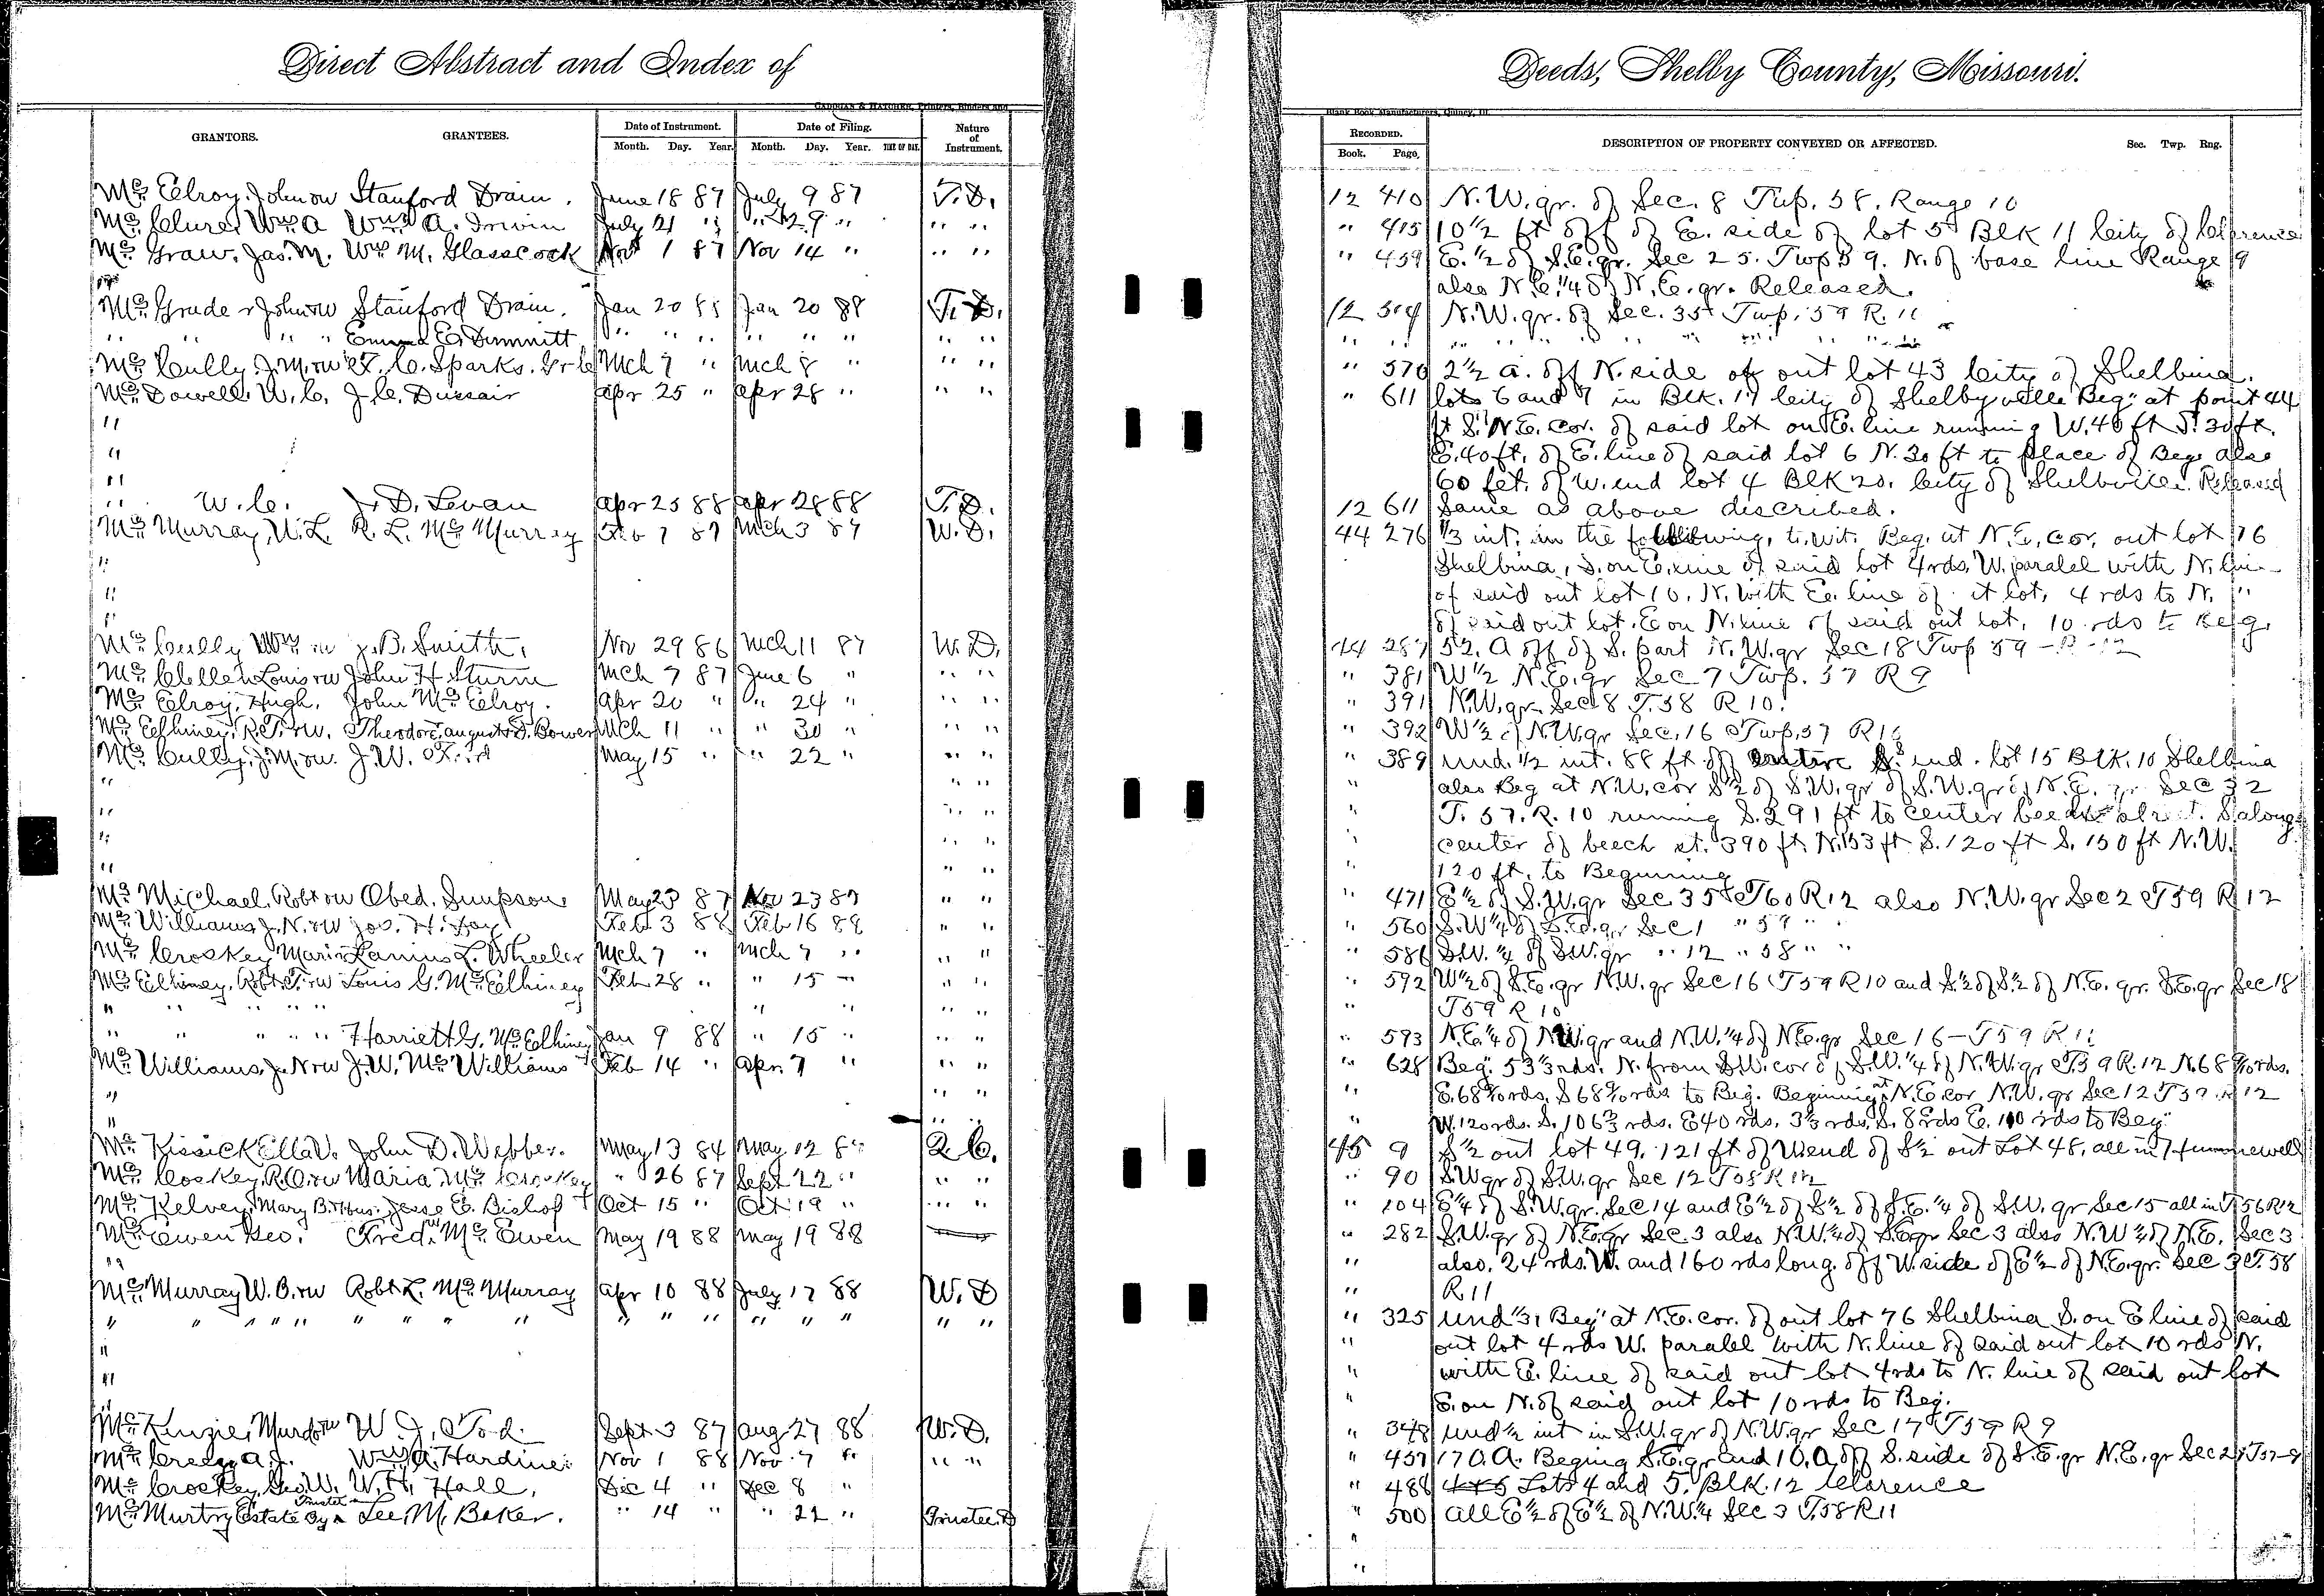 Direct Abstract and Index of
Deeds, Shelby County, Missouri.
CADOGAN & HATCHER, Printers, Binders and
Blank Book Manufacturers, Quincy, Ill.
GRANTORS. GRANTEES. Date of Instrument. Month. Day. Year. Date of Filing. Month. Day. Year. TIME OF DAY. Nature of Instrument.
RECORDED. Book. Page. DESCRIPTION OF PROPERTY CONVEYED OR AFFECTED. Sec. Twp. Rng.
Mc Elroy, John ow Stanford Drain. June 18 87 July 9 87 T.D. 12 410 N.W. qr. of Sec. 8 Twp. 58. Range 10
Mc Clure, Wm A Wm A. Irwin July 21 " " 29 " " " " 415 10 1/2 ft off of E. side of lot 5 Blk 11 City of Clarence
Mc Graw. Jas. M. Wm M. Glasscock Nov 1 87 Nov 14 " " " " 459 E. 1/2 of S.E. qr. Sec 25. Twp 59. N. of base line Range 9
also N.E. 1/4 of N.E. qr. Released
Mc Gruder John ow Stanford Drain. Jan 20 88 Jan 20 88 T.D. 12 504 N.W. qr. of Sec. 35 Twp. 59 R. 11
" " " " Emma E. Dimmitt " " " " " " " " " "
Mc Cully, J.M. ow T. C. Sparks. Mch 7 " Mch 8 " " " " 570 2 1/2 a. off N. side of out lot 43 City of Shelbina.
Mc Dowell. W. C. J. C. Dussair Apr 25 " Apr 28 " " " " 611 lots 6 and 7 in Blk. 17 City of Shelbyville Beg. at point 44
" ft S. N.E. cor. of said lot on E. line running W. 40 ft S. 30 ft.
" E. 40 ft. of E. line of said lot 6 N. 30 ft to place of Beg. also
" 60 fet. of W. end lot 4 Blk 20. City of Shelbville. Released
" W. C. J. D. Levan Apr 25 88 Apr 28 88 T.D. 12 611 Same as above described.
Mc Murray, W. L. R. L. Mc Murray Feb 7 87 Mch 3 87 W.D. 44 276 1/3 int. in the following, to wit. Beg. at N.E. cor. out lot 76
" Shelbina, S. on E. line of said lot 4 rds. W. paralel with N. line
" of said out lot 10. N. with E. line of lot, 4 rds to N. "
" of said out lot. E on N. line of said out lot, 10 rds to Beg.
Mc Cully Wm ow J. B. Smith. Nov 29 86 Mch 11 87 W.D. 44 287 52. A off of S. part N.W. qr Sec 18 Twp 59 - R 12
Mc Clellen Louis ow John H Sturm Mch 7 87 June 6 " " " " 381 W 1/2 N.E. qr Sec 7 Twp. 57 R 9
Mc Elroy, Hugh. John Mc Elroy. Apr 20 " " 24 " " " " 391 N.W. qr. Sec 8 T. 58 R 10.
Mc Elhiney, R.T. ow. Theodore, August D. Bower Mch 11 " " 30 " " " " 392 W 1/2 of N.W. qr Sec. 16 Twp. 57 R 10
Mc Cully, J.M. ow. J. W. Ford May 15 " " 22 " " " " 389 und. 1/2 int. 88 ft of entire S. end. lot 15 Blk. 10 Shelbina
" " " " also Beg at N.W. cor S 1/2 of S.W. qr of S.W. qr of N.E. qr Sec 32
" " " " T. 57. R. 10 runing S. 291 ft to center beech street. S along
" " " " center of beech st. 390 ft. N. 153 ft S. 120 ft S. 150 ft N.W.
" " " " 120 ft. to Beginning
Mc Michael, Robt ow Obed. Simpson May 23 87 Nov 23 87 " " " 471 E 1/2 of S.W. qr Sec. 35 T 60 R 12 also N.W. qr Sec 2 T 59 R 12
Mc Williams J. N. ow Jos. H. Fox Feb 3 88 Feb 16 88 " " " 560 S.W. 1/4 of S.E. qr Sec 1 " 59 "
Mc Croskey Maria Lanius L. Wheeler Mch 7 " Mch 7 " " " " 586 S.W. 1/4 of S.W. qr " 12 " 58 " "
Mc Elhiney, Robt. T. ow Louis G. Mc Elhiney Feb 28 " " 15 " " " " 592 W 1/2 of S.E. qr N.W. qr Sec 16 T 59 R 10 and S 1/2 of S 1/2 of N.E. qr. S.E. qr Sec 18
" " " " " " " T 59 R 10
" " " " Harriett G. Mc Elhiney Jan 9 88 " 15 " " " " 593 N.E. 1/4 of N.W. qr and N.W. 1/4 of N.E. qr Sec 16 - T 59 R 11
Mc Williams, J. N ow J. W. Mc Williams Feb 14 " Apr. 7 " " " " 628 Beg. 53 1/3 rds. N. from S.W. cor of S.W. 1/4 of N.W. qr T. 59 R. 12 N. 68 rds.
" " " " E. 68 rds. S 68 rds to Beg. Beginning at N.E. cor N.W. qr Sec 12 T 59 R 12
" " " " W. 120 rds. S. 106 2/3 rds. E 40 rds. 3 1/3 rds. S. 8 rds E. 110 rds to Beg.
Mc Kissick Ella V. John D. Webber. May 13 84 May 12 Q.C. 45 9 S 1/2 out lot 49. 121 ft of W end of S 1/2 out Lot 48, all in Hunnewell
Mc Croskey, R.O. ow Maria Mc Croskey " 26 87 Sept 22 " " " " 90 S.W qr of S.W. qr Sec 12 T 58 R 12
Mc Kelvey, Mary B. Hus. Jesse E. Bishop Oct 15 " Oct 19 " " " " 104 E 1/4 of S.W. qr. Sec 14 and E 1/2 of S 1/2 of S.E. 1/4 of S.W. qr Sec 15 all in T 56 R 12
Mc Ewen Geo. Fred. W Mc Ewen May 19 88 May 19 88 " 282 S.W. qr of N.E. qr Sec. 3 also N.W. 1/4 of S.E. qr Sec 3 also N.W 1/4 of N.E. Sec 3
" " also. 24 rds. W. and 160 rds long. off W. side of E 1/2 of N.E. qr. Sec 3 T. 58
" R 11
Mc Murray W. B. ow Robt L. Mc Murray Apr 10 88 July 17 88 W.D
" " " " " " " " " " " " " " " " " " 325 und 1/3, Beg at N.E. cor. of out lot 76 Shelbina S. on E line of said
" " out lot 4 rds W. paralel with N. line of said out lot 10 rds N.
" " with E. line of said out lot 4 rds to N. line of said out lot
" E. on N. of said out lot 10 rds to Beg.
Mc Kenzie, Murdo ow W. J. Tod. Sept 3 87 Aug 27 88 W.D. " 348 und 1/2 int in S.W. qr of N.W. qr Sec 17 T 59 R 9
Mc Creary A. J. Wm A. Hardine Nov 1 88 Nov. 7 " " " " 457 170. A. Begining S.E. qr and 10. A off S. side of S.E. qr N.E. qr Sec 2 T 57-9
Mc Croskey, Geo. W. W. H. Hall. Dec 4 " Dec 8 " " 488 Lots 4 and 5. Blk. 12 Clarence
Mc Murtry Estate By Trustee Lee. M. Baker. " 14 " " 22 " Trustee D " 500 all E 1/2 of E 1/2 of N.W. 1/4 Sec 3 T. 58 R 11